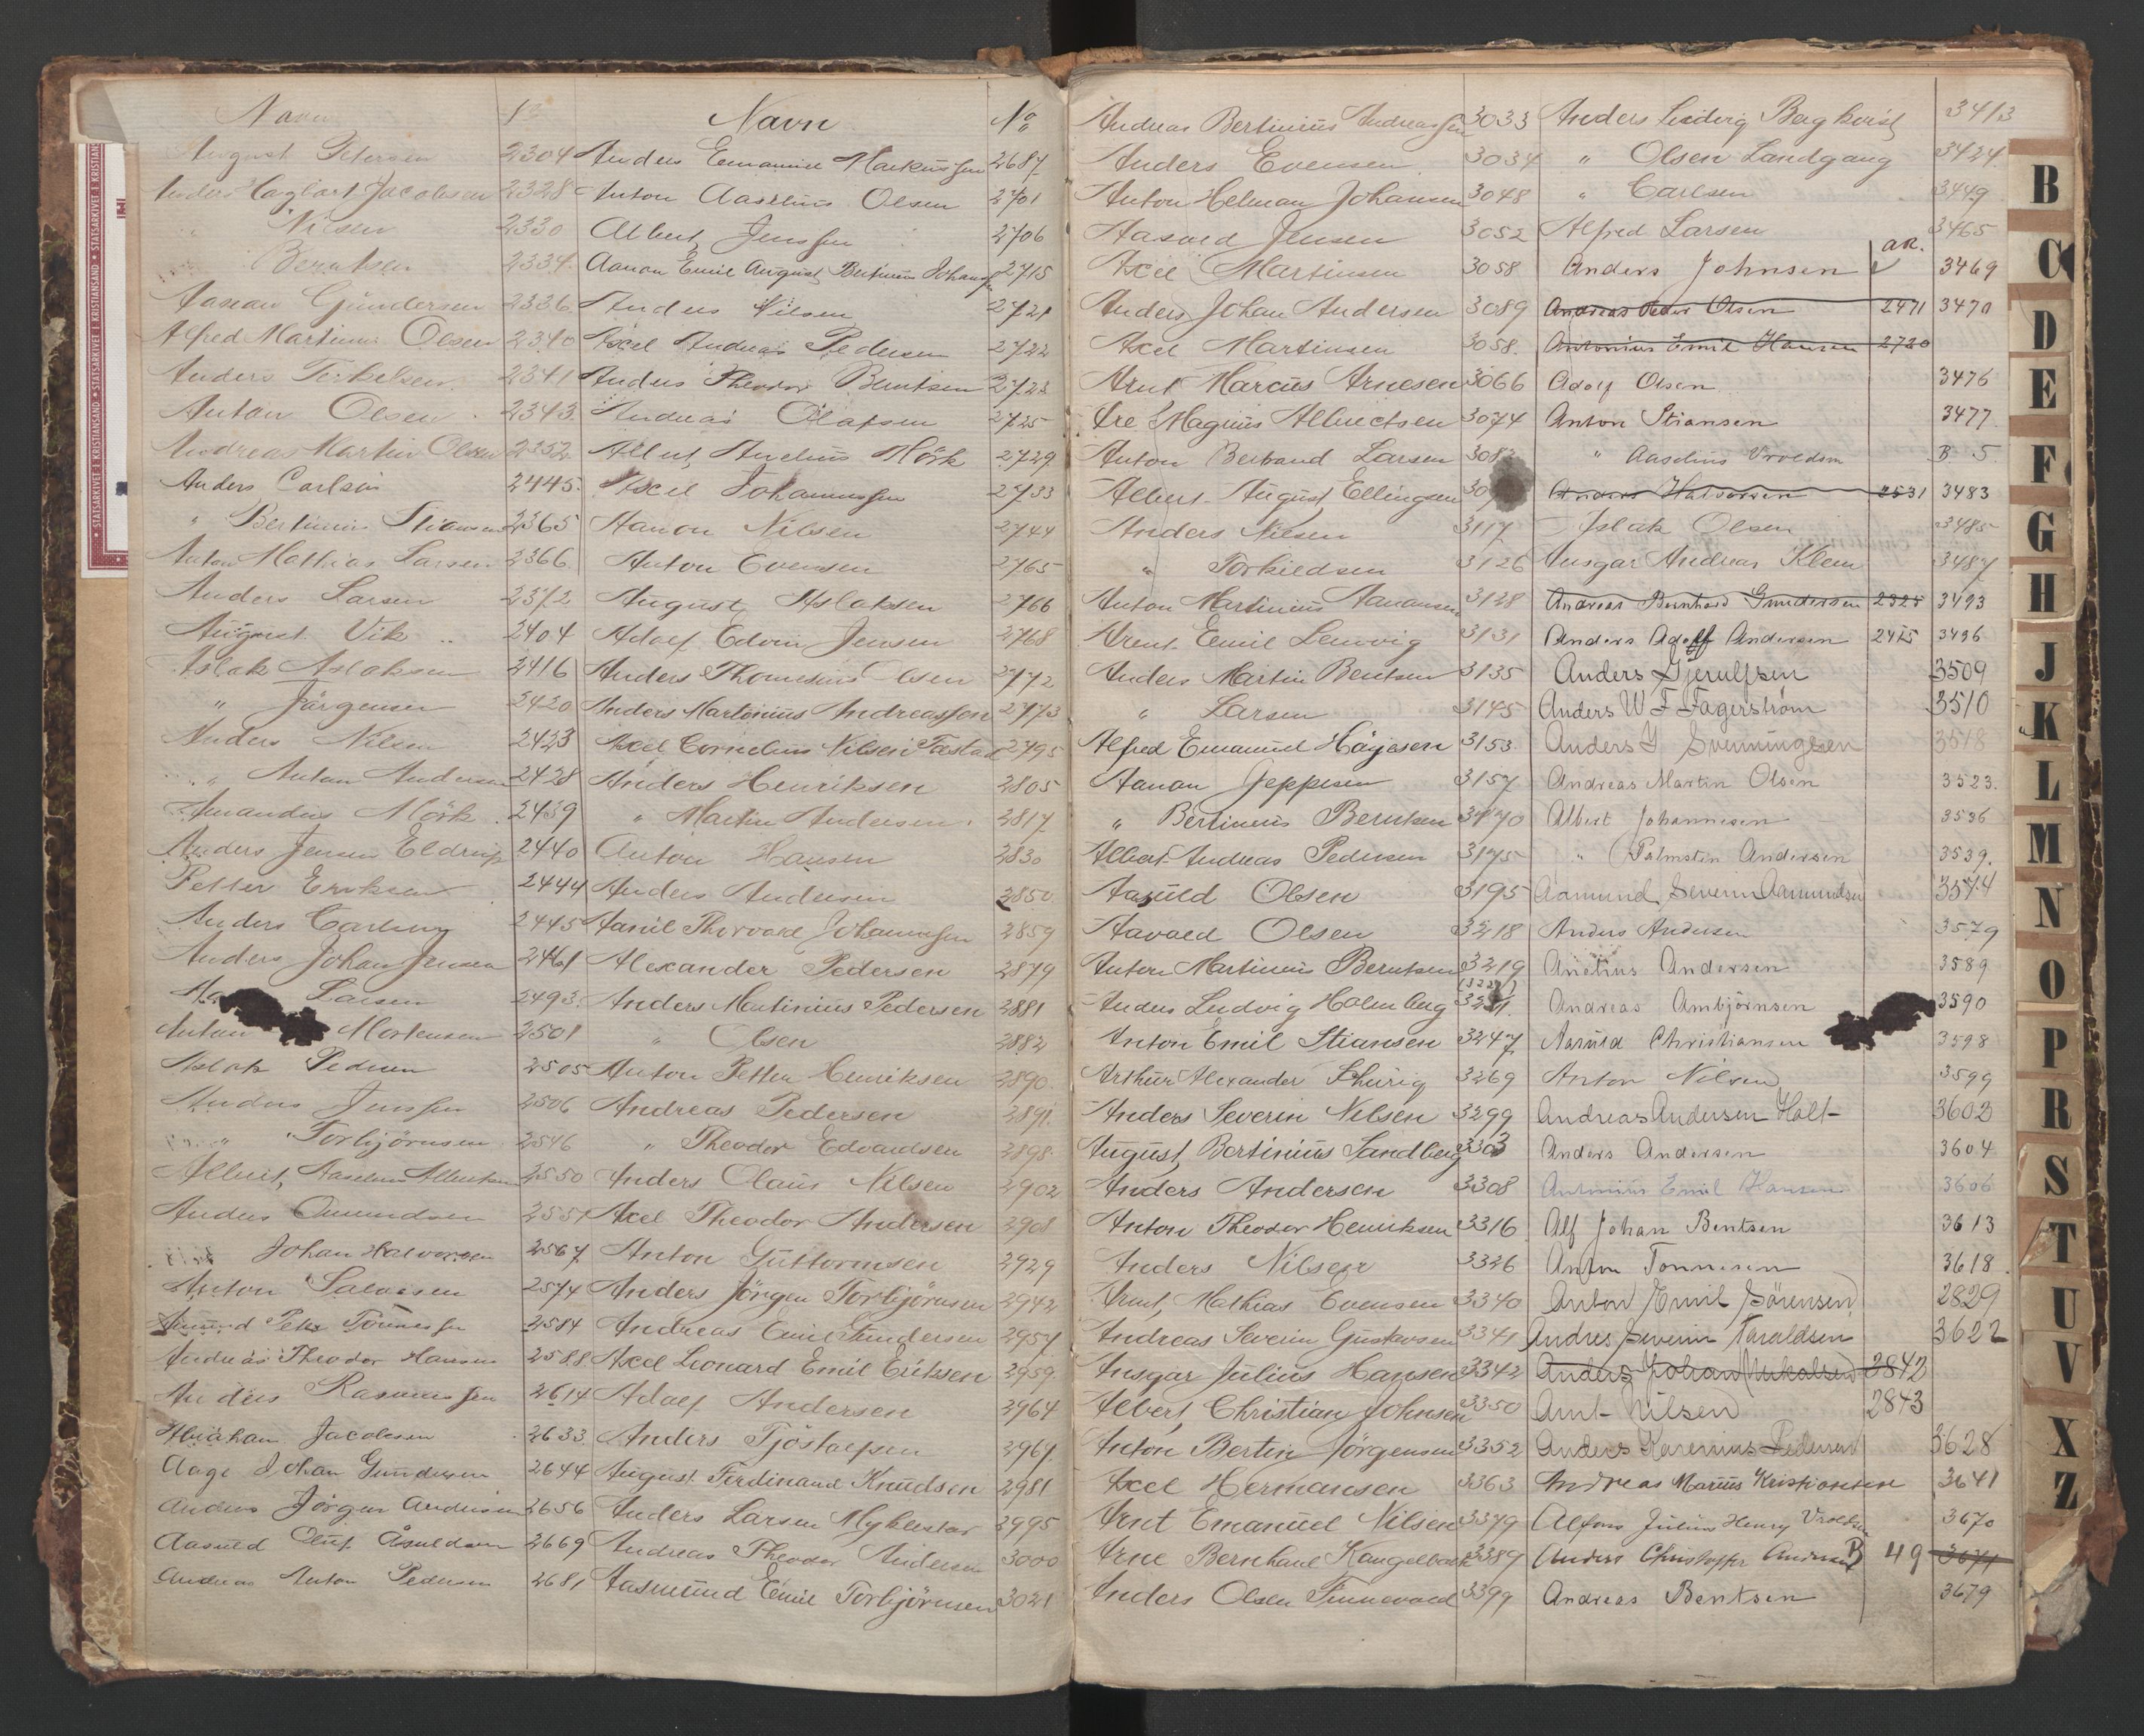 Navn No
August Petersen 2304
Anders Hagbart Jacobsen 2328
" Nilsen 2330
" Berntsen 2334
Gundersen 2336
Alfred Martinius Olsen 2340
Anders Terkelsen 2341
Anton Olsen 2343
Andreas Martin Olsen 2352
Anders Carlsen 2445
" Bertinius Stiansen 2365
Anton Mathias Larsen 2366
Anders Larsen 2372
August Vik 2404
Aslak Aslaksen 2416
" Jørgensen 2420
Anders Nilsen 2423
" Anton Andersen 2428
Amandus Mörk 2439
Anders Jensen Eldrup 2440
Petter Eriksen 2444
Anders Carlsen 2445
Anders Johan Jensen 2461
Larsen 2493
Anton Mortensen 2501
Aslak Pedersen 2505
Anders Jenssen 2506
" Torbjörnsen 2546
Albert Aaselius Albertsen 2550
Anders Omundsen 2551
Johan Halvorsen 2567
Anton Salvesen 2574
Amund Peter Tönnessen 2584
Andreas Theodor Hansen 2588
Anders Rasmussen 2614
Abraham Jacobsen 2633
Aage Johan Gundersen 2644
Anders Jörgen Andersen 2656
Aasuld Oluf Åsuldsen 2669
Andreas Anton Pedersen 2681
Navn No
Anders Emanuel Markussen 2687
Anton Aaselius Olsen 2701
Albert Jenssen 2706
Aanon Emil August Bertinius Johansen 2715
Anders Nilsen 2721
Axel Andreas Pedersen 2722
Anders Theodor Berntsen 2723
Andreas Olafsen 2725
Albert Andreas Mörk 2729
Axel Johannessen 2733
Aanon Nilsen 2744
Anton Evensen 2765
August Aslaksen 2766
Adolf Edvin Jensen 2768
Anders Thomesius Olsen 2772
Anders Martinius Andreassen 2773
Axel Cornelius Nilsen Tastad 2795
Anders Henriksen 2805
" Martin Andersen 2817
Anton Hansen 2830
Anders Andersen 2850
Aanil Thorvald Johannesen 2859
Alexander Pedersen 2879
Anders Martinius Pedersen 2881
" Olsen 2882
Anton Petter Henriksen 2890
Andreas Pedersen 2891
" Theodor Edvardsen 2898
Anders Olaus Nilsen 2902
Axel Theodor Andersen 2908
Anton Guttormsen 2929
Anders Jörgen Torbjörnsen 2942
Andreas Emil Gundersen 2957
Axel Leonard Emil Eriksen 2959
Adolf Andersen 2964
Anders Tjöstolfsen 2967
August Ferdinand Knudsen 2981
Anders Larsen Myklestad 2995
Andreas Theodor Andersen 3000
Aasmund Emil Torbjörnsen 3021
Andreas Bertinius Andreassen 3033
Anders Evensen 3034
Anton Helman Johansen 3048
Aasvald Jensen 3052
Axel Martinsen 3058
Anders Johan Andersen 3089
Axel Martinsen 3058
Arnt Marcus Arnesen 3066
Are Magnus Albrectsen 3074
Anton Bertrand Larsen 308
Albert August Ellingsen 30
Anders Nilsen 3117
" Torkildsen 3126
Anton Martinius Aanonsen 3128
Arent Emil Lervig 3131
Anders Martin Bentsen 3135
" Larsen 3145
Alfred Emanuel Höyesen 3153
Aanon Jeppesen 3157
" Bertinius Berntsen 3170
Albert Andreas Pedersen 3175
Aasuld Olsen 3195
Aavald Olsen 3218
Anton Martinius Berntsen 3219
Anders Ludvig Holmberg 3221
Anton Emil Stiansen 3247
Arthur Alexander Schurig 3269
Anders Severin Nilsen 3299
August Bertinius Sandberg 3303
Anders Andersen 3308
Anton Theodor Henriksen 3316
Anders Nilsen 3326
Arent Mathias Evensen 3340
Andreas Severin Gustavsen 3341
Ansgar Julius Hansen 3342
Albert Christian Johnsen 3350
Anton Bertin Jörgensen 3352
Axel Hermansen 3363
Arnt Emanuel Nilsen 3379
Arne Bernhard Kangelbak 3389
Anders Olsen Finnevold 3399
Anders Ludvig Bagkvist 3413
" Olsen Landgang 3424
" Carlsen 3449
Alfred Larsen 3465
Anders Johnsen ar. 3469
Andreas Peder Olsen 2471 3470
Antonius Emil Hansen 2720
Adolf Olsen 3476
Anton Stiansen 3477
" Aaselius Vroldsen B 5
Anders Halvorsen 2531 3483
Aslak Olsen 3485
Ansgar Andreas Klem 3487
Andreas Bernhard Gundersen 2325 3493
Anders Adolf Andersen 2475 3496
Anders Gjerulfsen 3509
Anders W F Fagerström 3510
Anders Y Svenningsen 3518
Andreas Martin Olsen 3523
Albert Johannesen 3536
" Palmstin Andersen 3539
Aamund Severin Aamundsen 3574
Anders Andersen 3579
Anetius Andersen 3589
Andreas Ambjörnsen 3590
Aasuld Christiansen 3598
Anton Nilsen 3599
Andreas Andersen Holt 3602
Anders Andersen 3604
Antonius Emil Hansen 3606
Alf Johan Bentsen 3613
Anton Tönnesen 3618
Anton Emil Sörensen 2829
Andres Severin Taraldsen 3622
Anders Johan 2842
Arnt Nilsen 2843
Anders Karenius Pedersen 3628
Andreas Marius Kristiansen 3641
Alfons Julius Henry Vroldsen 3670
Anders Christoffer Andersen B 49 3674
Andreas Bentsen 3679
B
C
D
E
F
G
H
J
K
L
M
N
O
P
R
S
T
U
V
X
Z
STATSARKIVET I KRISTIANSAND